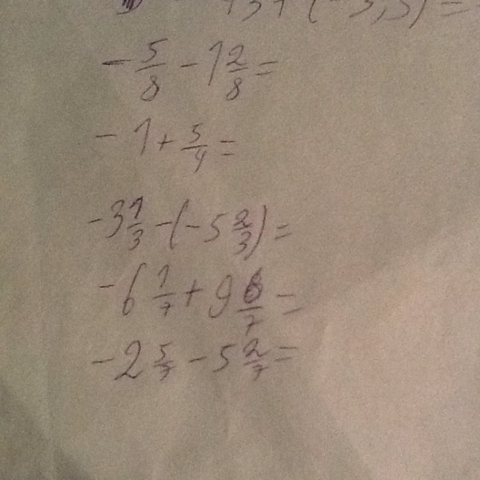 -5/8 - 1 2/8 =
-1 + 5/4 =
-3 1/3 - (-5 2/3) =
-6 1/7 + 9 6/7 =
-2 5/7 - 5 2/7 =